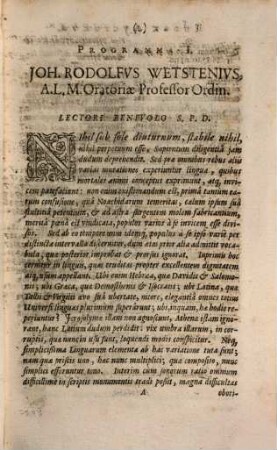 PROGRAMMA I.
JOH. RODOLFVS WETSTENIVS,
A.L.M. Oratoriæ Professor Ordin.
LECTORI BENEVOLO S. P. D.
NIhil sub sole diuturnum, stabile nihil,
nihil perpetuum esse, Sapientum diligentiâ jam
dudum deprehendit. Sed præ omnibus rebus aliis
varias mutationes experiuntur linguæ, quibus
mortales animi conceptus exprimunt, atq; invi-
cem patefaciunt: non enim existimandum est, primâ tantùm ea-
rum confusione, quâ temeritas, cælum ipsum suâ
stultitiâ petentium, & ad astra surgentem molem fabricantium,
meritâ pœnâ est vindicata, populos varios à se invicem esse divi-
sos. Sed ab eo tempore unus idemq; populus à se ipso variè per
distincta intervalla dividitur, dum alias prior alia admittit voca-
bula, quæ posterior improbat & prorsus ignorat. Inprimis hoc
cernitur in linguis, quæ eruditas propter excellentem dignitatem
atq; usum appellant. Ubi enim Hebræa, quæ Davidis & Salomo-
nis; ubi Græca, quæ Demosthenis & Isocratis; ubi Latina, quæ
Tullii & Virgilii ævo suâ ubertate, mere, elegantiâ omnes totius
Universi linguas plurimùm superârunt; ubi, inquam, he hodie re-
periuntur? Jerosolyma illam non agnoscunt, Athenæ istam igno-
rant, hanc Latium dudum perdidit: vix umbra illarum, in cor-
ruptis, quæ nunc in usu sunt, loquendi modis conspicitur. Neq;
simplicissima Linguarum elementa ab hac variatione tuta sunt:
nam quæ priscis uno, hæc nunc multiplici; quæ composito, nunc
simplici efferuntur sono. Interim cum sonorum ratio omnium
difficillimè in scriptis monumentis tradi possit, magna difficultas
A
obori-